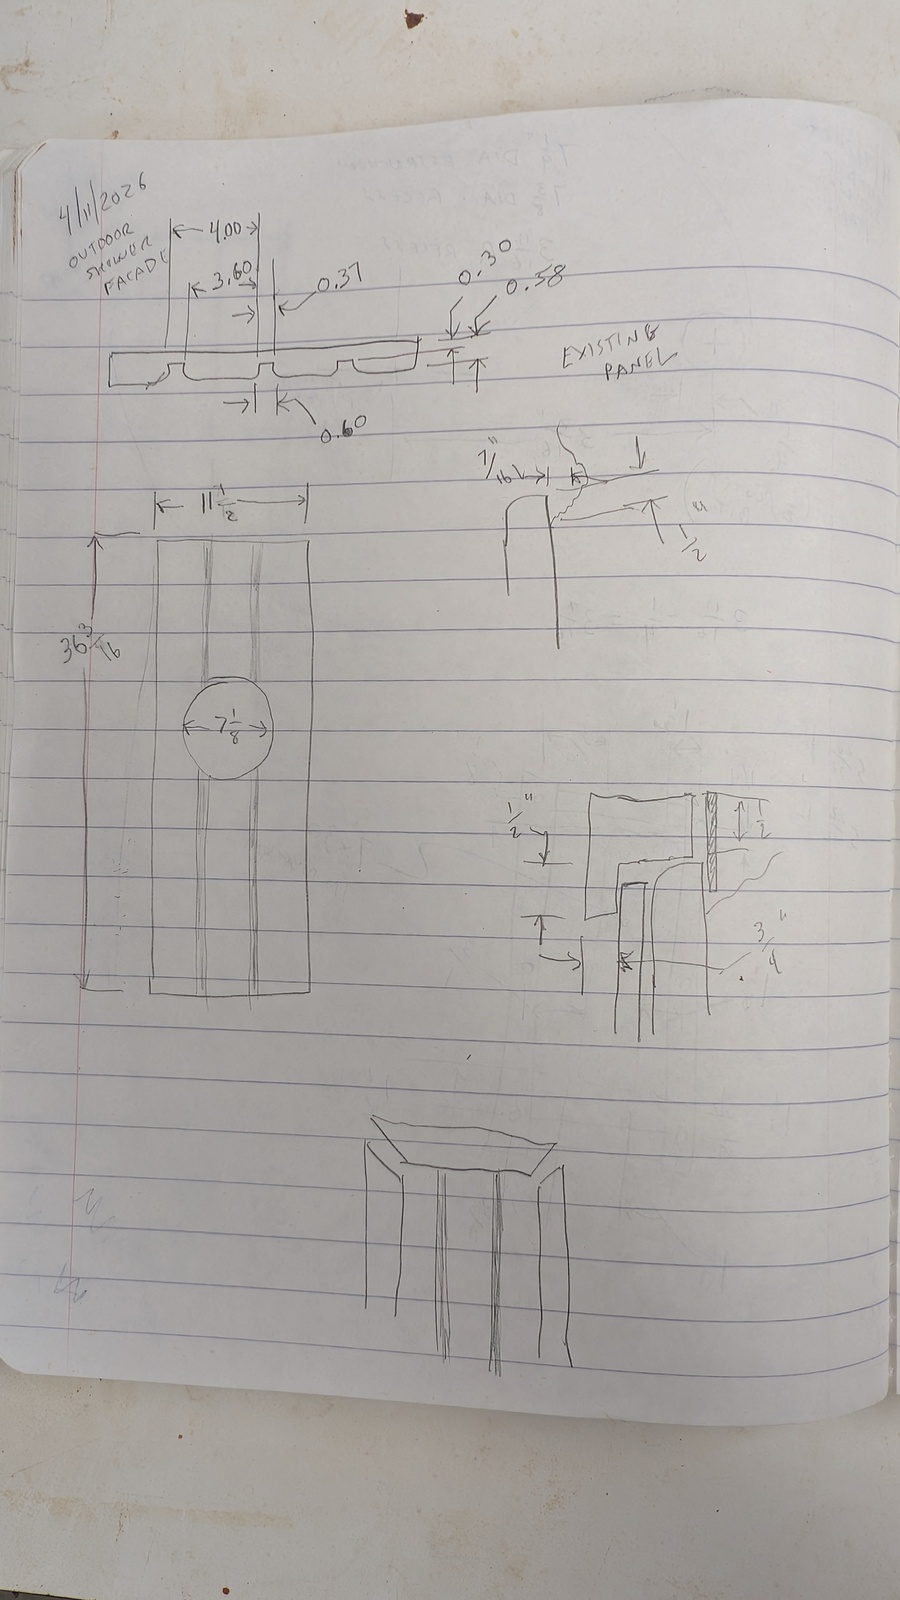 4/11/2026
OUTDOOR
SHOWER
FACADE
4.00
3.60
0.37
0.30
0.58
0.60
EXISTING
PANEL
11 1/2
36 3/16
7 1/8
1/2"
1/2"
1/2
3/4"